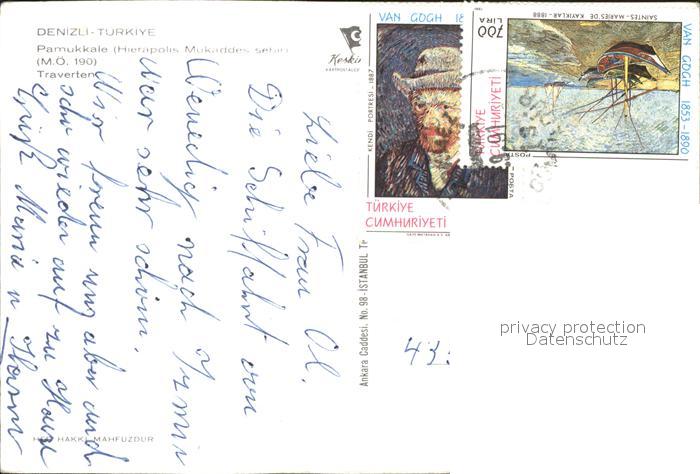 DENİZLİ - TÜRKİYE
Pamukkale (Hierapolis Mukaddes şehir)
(M.Ö. 190)
Traverten
Keskin
KARTPOSTALCILIK
Liebe Frau Ol.
Die Schiffahrt von
Venedig nach Izmir
war sehr schön.
Wir freun uns aber auch
sehr wieder auf zu Hause
Gruß Maria u. Hans
HER HAKKI MAHFUZDUR
Ankara Caddesi, No. 98 - İSTANBUL
VAN GOGH
KENDİ PORTRESİ - 1887
POSTA
TÜRKİYE
CUMHURİYETİ
700
LİRA
SAINTES - MARIES'DE KAYIKLAR - 1888
VAN GOGH 1853 - 1890
POSTA
TÜRKİYE
CUMHURİYETİ
43
privacy protection
Datenschutz